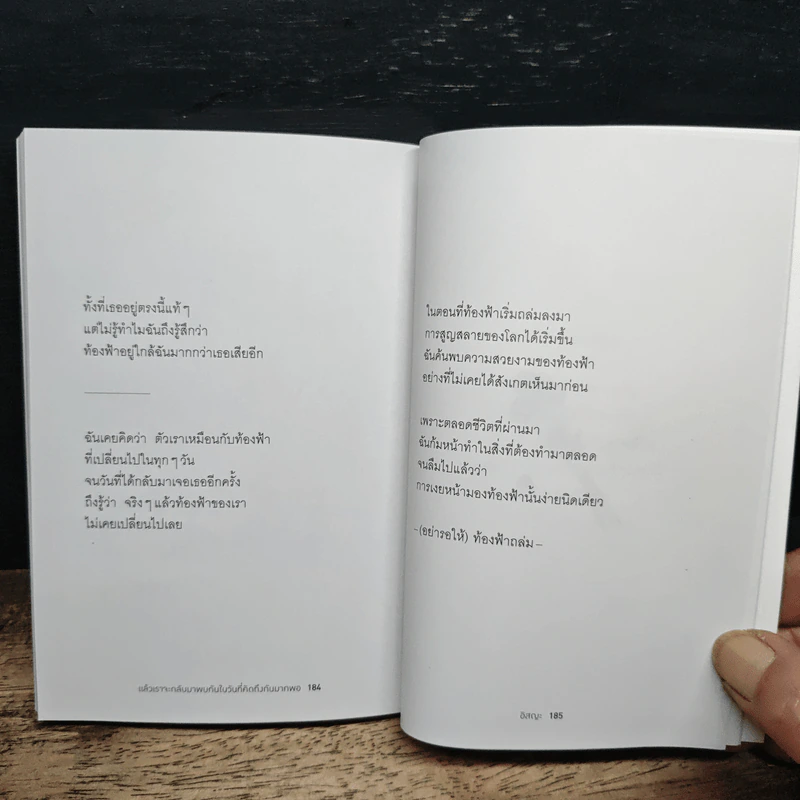 ทั้งที่เธออยู่ตรงนี้แท้ๆ
แต่ไม่รู้ทำไมฉันถึงรู้สึกว่า
ท้องฟ้าอยู่ใกล้ฉันมากกว่าเธอเสียอีก
ฉันเคยคิดว่า ตัวเราเหมือนกับท้องฟ้า
ที่เปลี่ยนไปในทุกๆวัน
จนวันที่ได้กลับมาเจอเธออีกครั้ง
ถึงรู้ว่า จริงๆแล้วท้องฟ้าของเรา
ไม่เคยเปลี่ยนไปเลย
แล้วเราจะกลับมาพบกันในวันที่คิดถึงกันมากพอ 184
ในตอนที่ท้องฟ้าเริ่มถล่มลงมา
การสูญสลายของโลกได้เริ่มขึ้น
ฉันค้นพบความสวยงามของท้องฟ้า
อย่างที่ไม่เคยได้สังเกตเห็นมาก่อน
เพราะตลอดชีวิตที่ผ่านมา
ฉันก้มหน้าทำในสิ่งที่ต้องทำมาตลอด
จนลืมไปแล้วว่า
การเงยหน้ามองท้องฟ้านั้นง่ายนิดเดียว
–(อย่ารอให้) ท้องฟ้าถล่ม–
อิสญะ 185